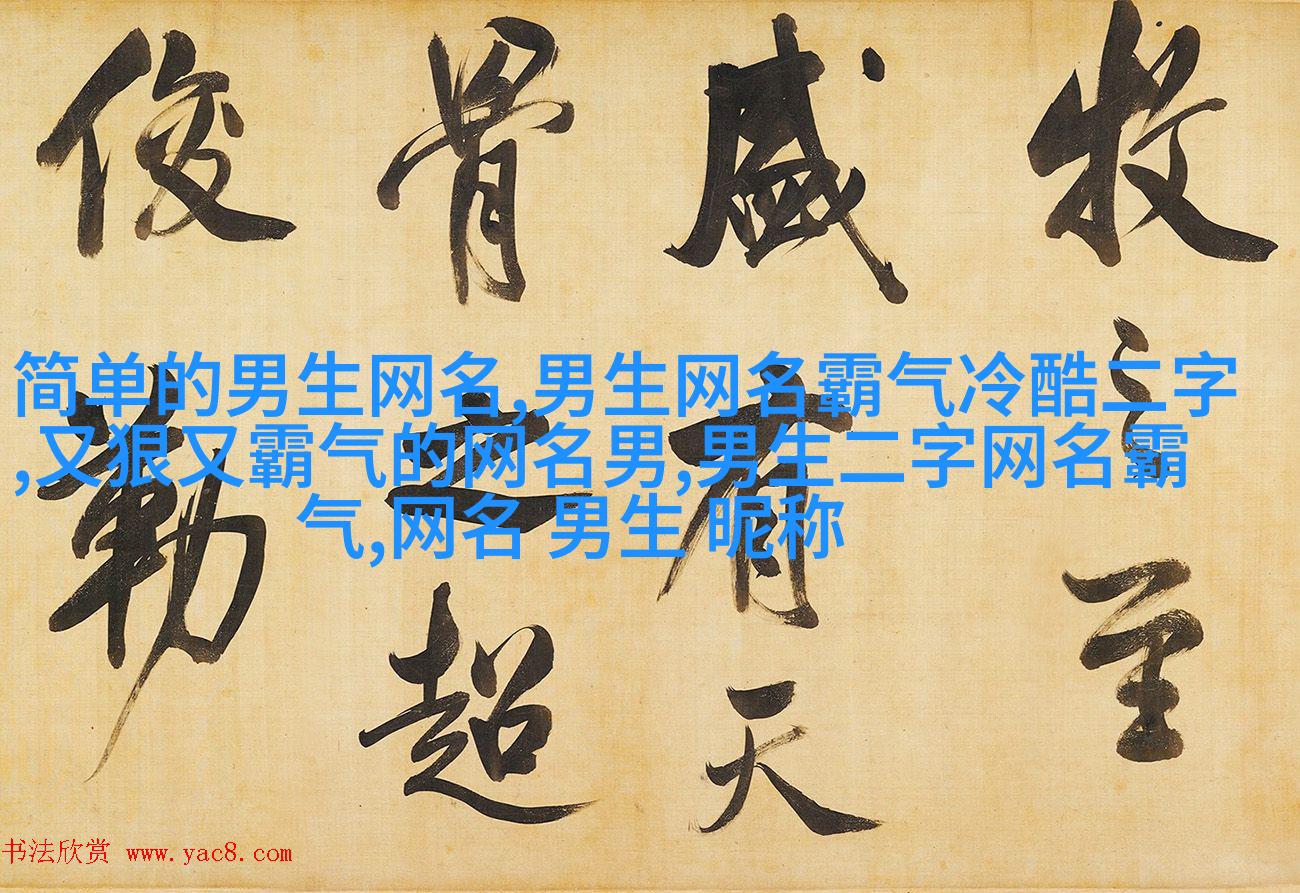 牧之至
盛有天
骨之超
俊勒
简单的男生网名,男生网名霸气冷酷二字
,又狠又霸气的网名男,男生二字网名霸
气,网名 男生 昵称
书法欣赏 www.yac8.com